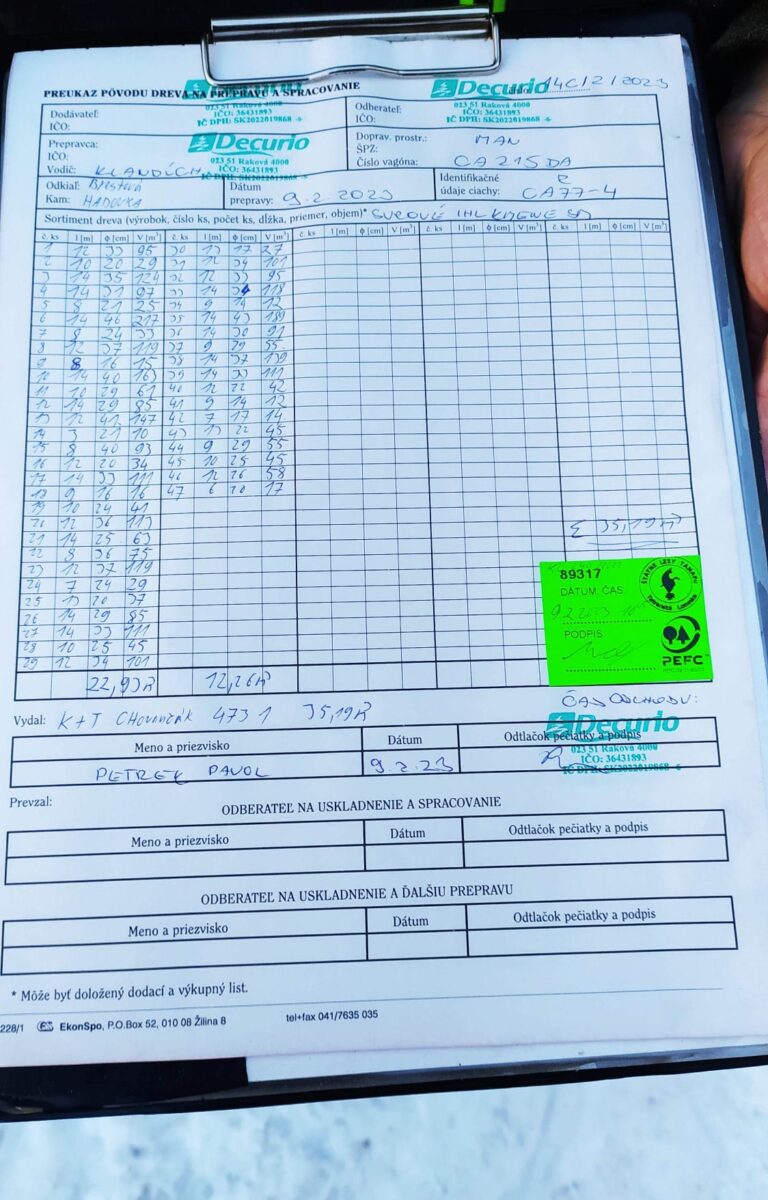 PREUKAZ PÔVODU DREVA NA PREPRAVU A SPRACOVANIE
Decurio
023 51 Raková 4000
IČO: 36431893
IČ DPH: SK2022019868
Decurio
14C/2/2023
023 51 Raková 4000
IČO: 36431893
IČ DPH: SK2022019868
Dodávateľ:
IČO:
Odberateľ:
IČO:
Prepravca:
IČO:
Vodič:
Decurio
023 51 Raková 4000
IČO: 36431893
IČ DPH: SK2022019868
Doprav. prostr.: MAN
ŠPZ:
Číslo vagóna: CA 215 DA
Odkiaľ:
Kam: HADOVKA
Dátum
prepravy: 9.2.2023
Identifikačné
údaje ciachy: CA77-4
Sortiment dreva (výrobok, číslo ks, počet ks, dĺžka, priemer, objem)* SUROVÉ
č. ks l [m] ϕ [cm] V [m³] č. ks l [m] ϕ [cm] V [m³] č. ks l [m] ϕ [cm] V [m³] č. ks l [m] ϕ [cm] V [m³] č. ks l [m] ϕ [cm] V [m³]
1 12 33 95 30 13 17 27
2 10 20 29 31 12 34 101
3 14 35 124 32 12 33 95
4 14 31 97 33 14 34 118
5 8 21 25 34 9 14 12
6 14 46 217 35 14 43 189
7 8 24 33 36 14 30 91
8 12 37 119 37 9 29 55
9 8 16 15 38 14 37 139
10 14 40 163 39 14 33 111
11 10 29 61 40 12 22 42
12 14 29 85 41 9 14 12
13 12 41 147 42 7 17 14
14 3 21 10 43 13 22 45
15 8 40 93 44 9 29 55
16 12 20 34 45 10 25 45
17 14 33 111 46 12 26 58
18 9 16 16 47 6 20 17
19 10 24 41
20 12 36 113
21 14 25 63 Σ 35,19 m³
22 8 36 75
23 12 37 119
24 7 24 29
25 13 20 37
26 14 29 85
27 14 33 111
28 10 25 45
29 12 34 101
89317
DÁTUM, ČAS
PODPIS
ŠTÁTNE LESY TANAPU
Tatranská Lomnica
PEFC
22,93 m³ 12,26 m³
ČAS ODCHODU:
Vydal: K+T 473 1 35,19 m³
Decurio
023 51 Raková 4000
IČO: 36431893
IČ DPH: SK2022019868
Meno a priezvisko Dátum Odtlačok pečiatky a podpis
PETREK PAVOL 9.2.23
Prevzal:
ODBERATEĽ NA USKLADNENIE A SPRACOVANIE
Meno a priezvisko Dátum Odtlačok pečiatky a podpis
ODBERATEĽ NA USKLADNENIE A ĎALŠIU PREPRAVU
Meno a priezvisko Dátum Odtlačok pečiatky a podpis
* Môže byť doložený dodací a výkupný list.
228/1 EkonSpo, P.O.Box 52, 010 08 Žilina 8 tel+fax 041/7635 035